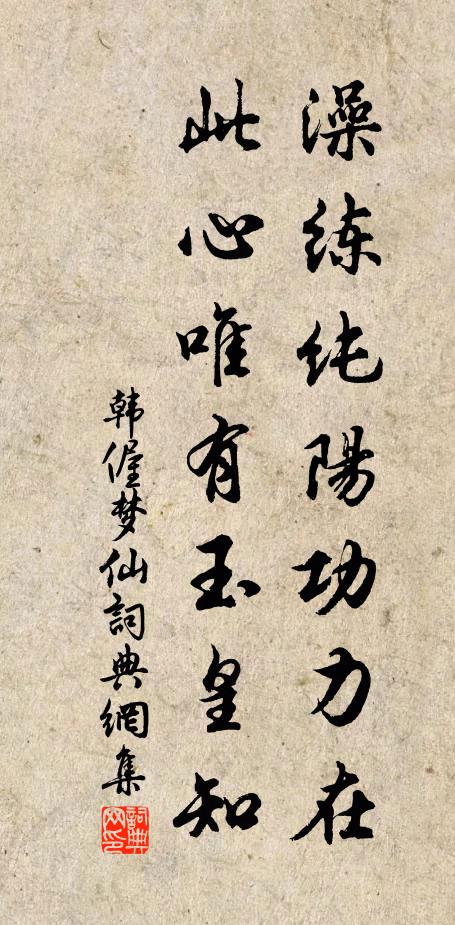 澡练纯陽功力在
此心唯有玉皇知
韩偓梦仙詞典網集
詞典网印